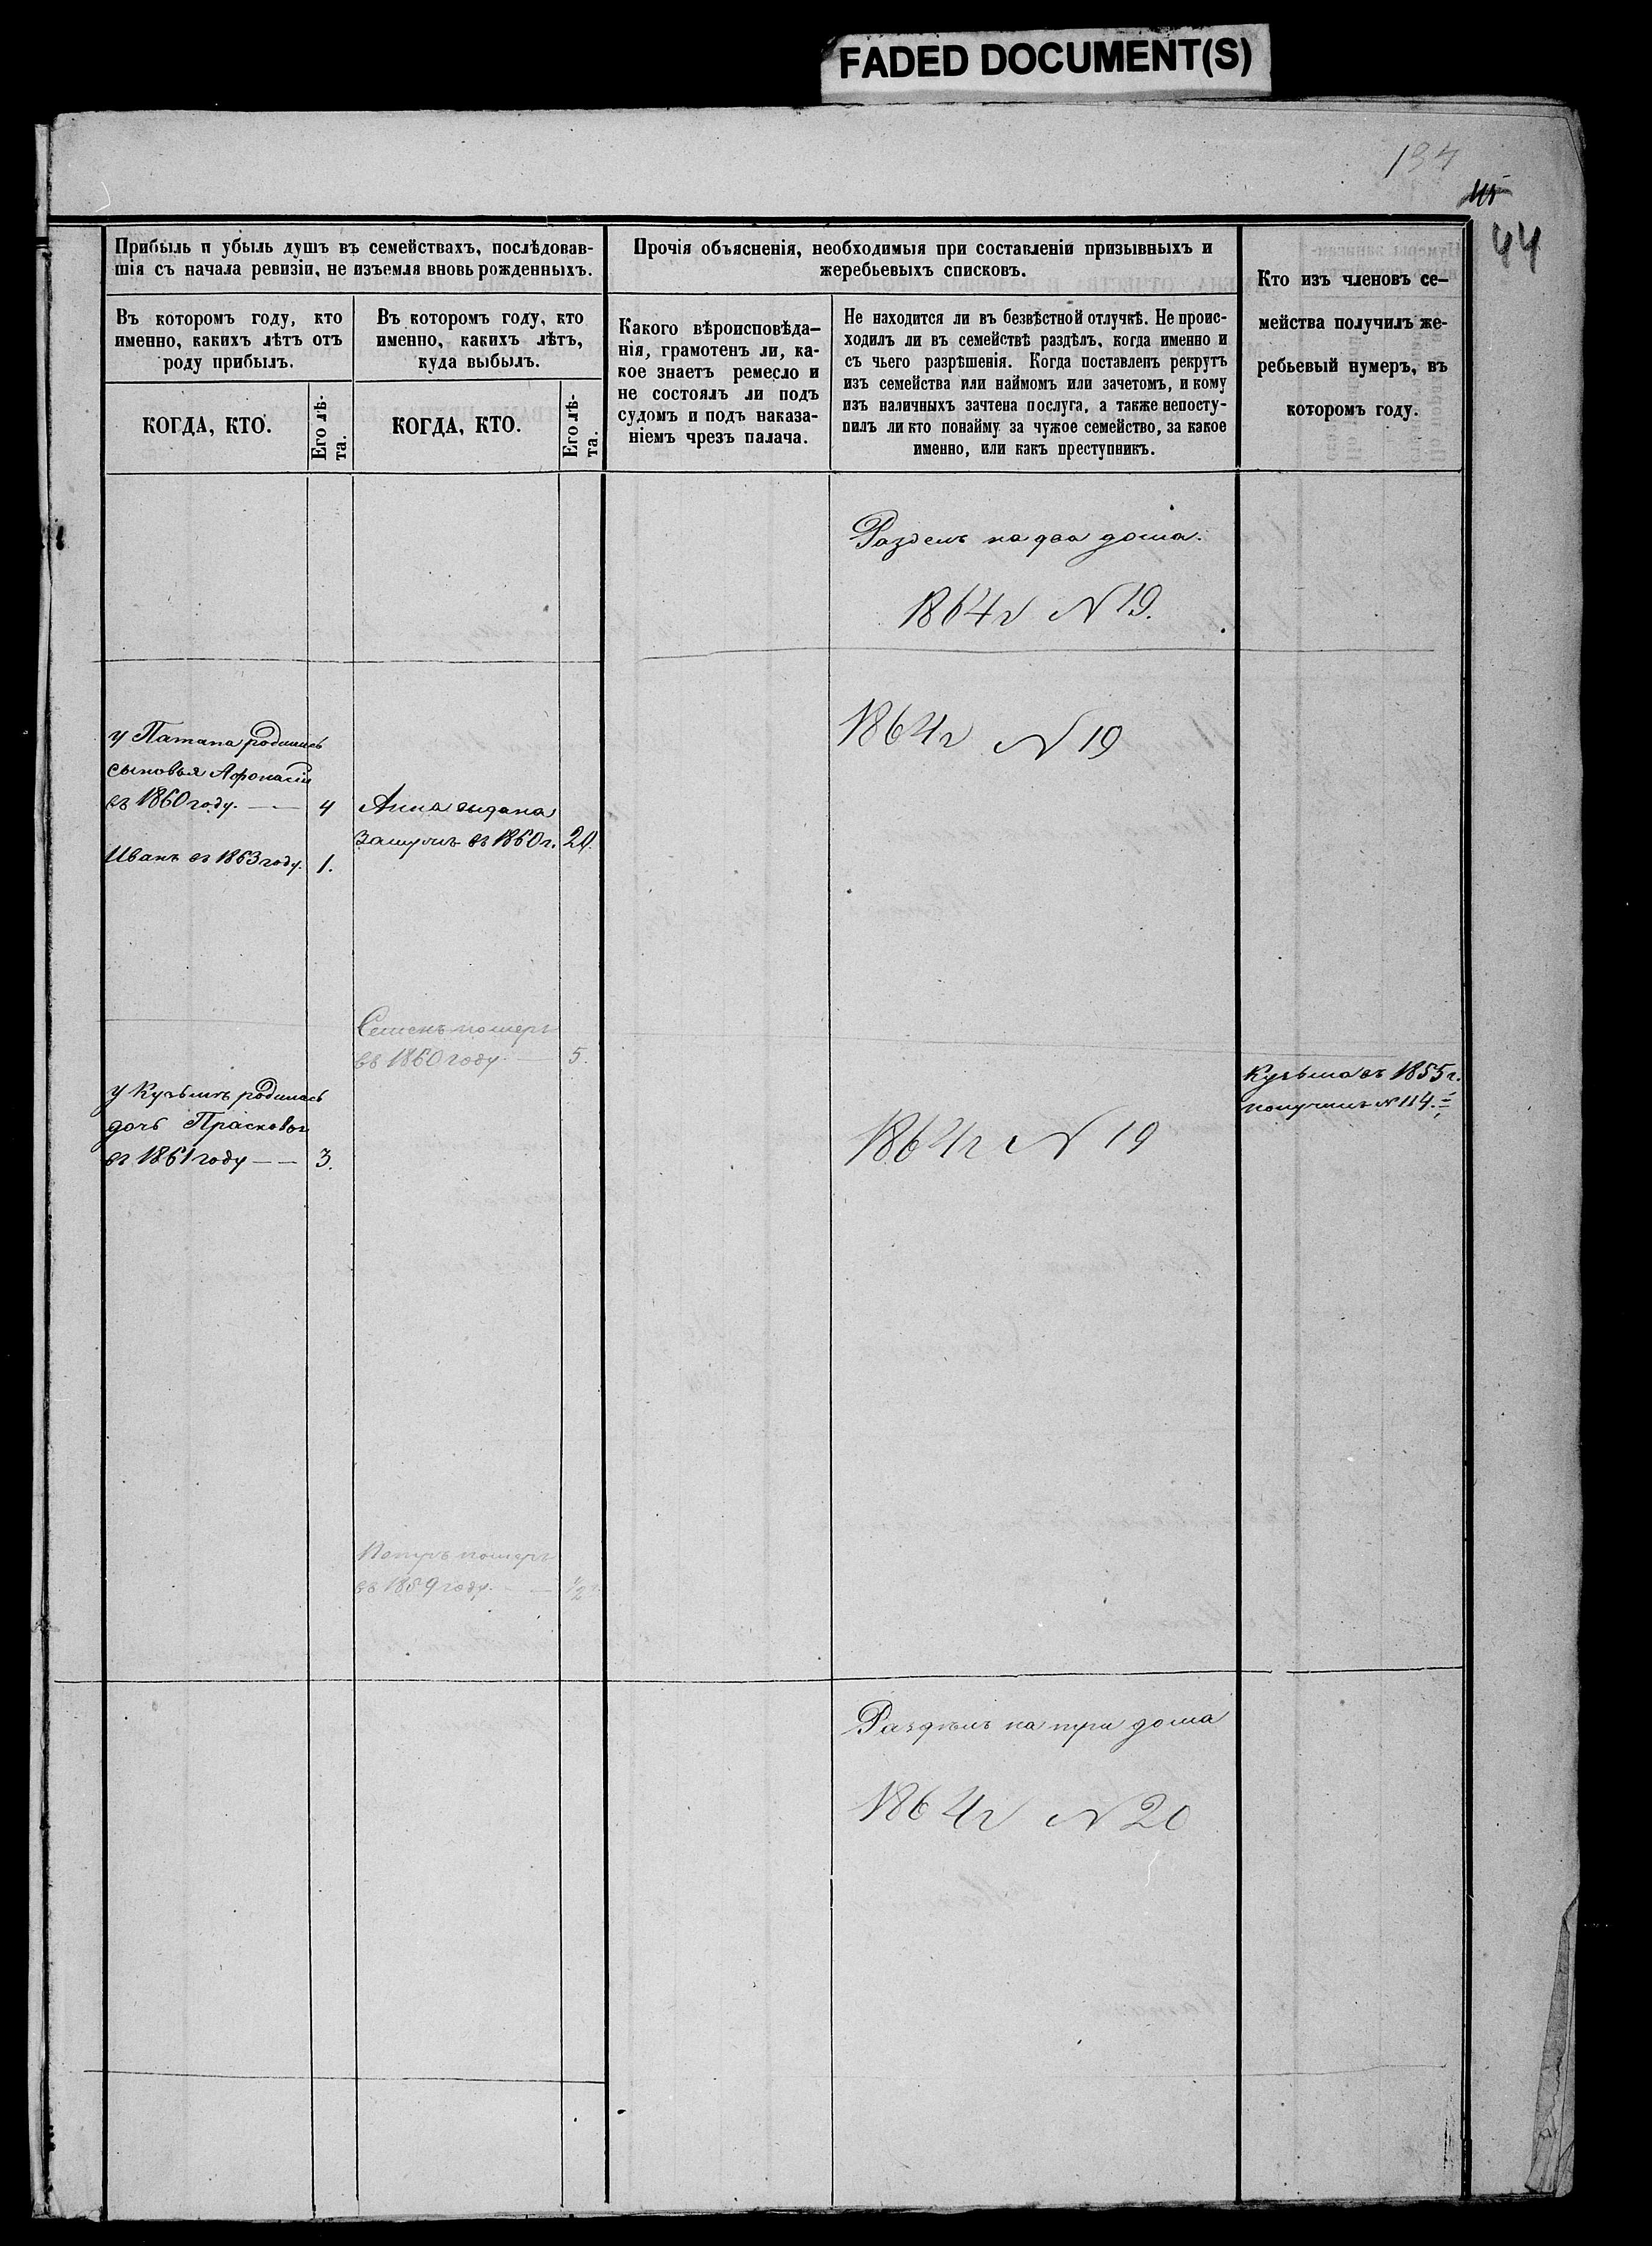 FADED DOCUMENT(S)
134
44
Прибыль и убыль душъ въ семействахъ, послѣдовав-
шія съ начала ревизіи, не изъемля вновь рожденныхъ.
Въ которомъ году, кто
именно, какихъ лѣтъ отъ
роду прибылъ.
КОГДА, КТО.
Его лѣ-
та.
Въ которомъ году, кто
именно, какихъ лѣтъ,
куда выбылъ.
КОГДА, КТО.
Его лѣ-
та.
Прочія объясненія, необходимыя при составленіи призывныхъ и
жеребьевыхъ списковъ.
Какого вѣроисповѣда-
нія, грамотенъ ли, ка-
кое знаетъ ремесло и
не состоялъ ли подъ
судомъ и подъ наказа-
ніемъ чрезъ палача.
Не находится ли въ безвѣстной отлучкѣ. Не проис-
ходилъ ли въ семействѣ раздѣлъ, когда именно и
съ чьего разрѣшенія. Когда поставленъ рекрутъ
изъ семейства или наймомъ или зачетомъ, и кому
изъ наличныхъ зачтена послуга, а также непосту-
пилъ ли кто понайму за чужое семейство, за какое
именно, или какъ преступникъ.
Кто изъ членовъ се-
мейства получилъ же-
ребьевый нумеръ, въ
которомъ году.
Раздель на два дома.
1864г N 19.
у Патапа родились
сыновья Афонасій
въ 1860 году. — 4
Иванъ въ 1863 году. 1.
Анна выдана
замужъ въ 1860 г. 20.
1864г N 19
Семенъ померъ
въ 1860 году. — 5.
у Кузьмы родилась
дочь Прасковья
въ 1861 году — — 3.
1864г N 19
Кузьма въ 1855 г.
получилъ N 114.
Петръ померъ
въ 1859 году. — — 1/2
Раздѣлъ на три дома
1864г N 20